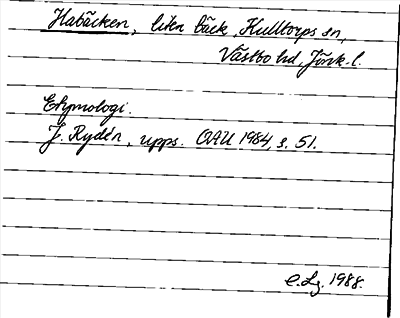 Habäcken, liten bäck, Kulltorps sn,
Västbo hd, Jönk. l.
Etymologi.
J. Rydén, upps. OAU 1984, s. 51.
C.Lg. 1988.